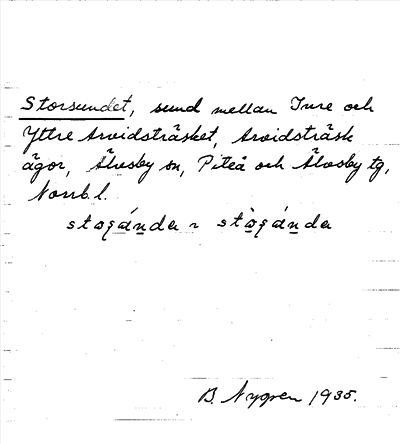 Storsundet, sund mellan Inre och
Yttre Arvidsträsket, Arvidsträsk
ägor, Älvsby sn, Piteå och Älvsby tg,
Norrb. l.
B. Nygren 1935.